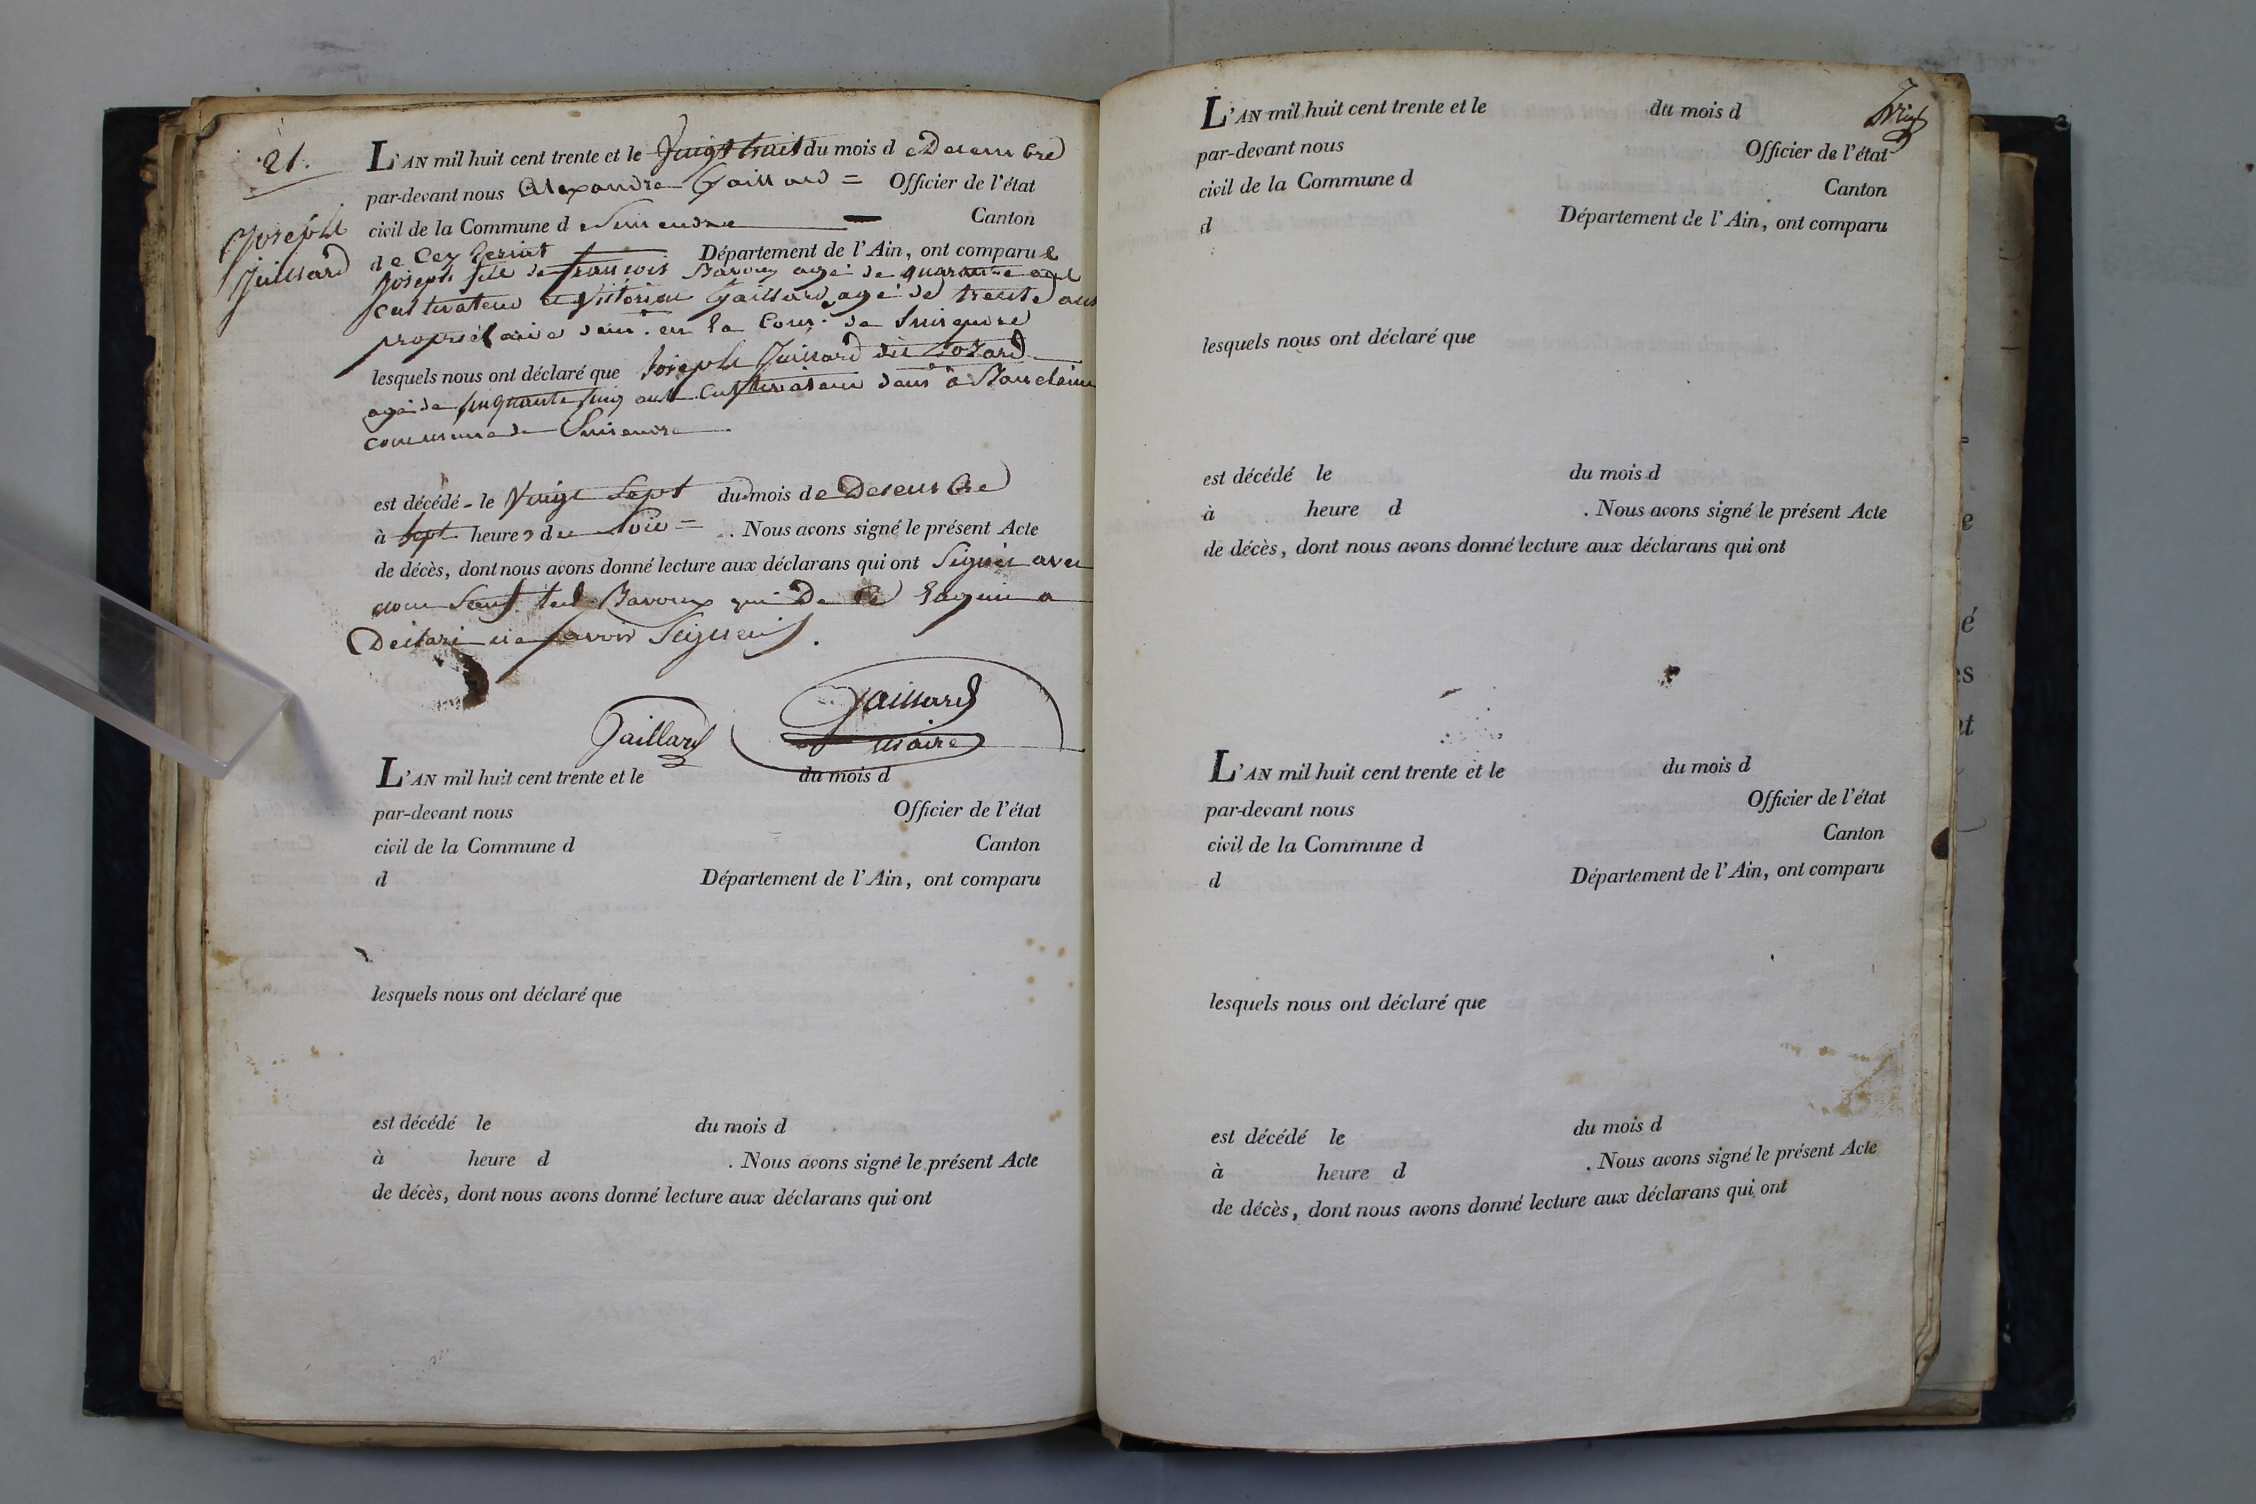 21.
Joseph
Juillard
L'AN mil huit cent trente et le Vingt huit du mois de Decembre
par-devant nous Alexandre Gaillard = Officier de l'état
civil de la Commune de Simandre Canton
de Ceyzeriat Département de l'Ain, ont comparu
Joseph fils de françois Bavoux agé de quarante
cultivateur et Victorien Gaillard agé de trente ans
propriétaire dem. en la Com. de Simandre
lesquels nous ont déclaré que Joseph Juillard dit
agé de sinquante sinq ans Cultivateur dem. à
commune de Simandre
est décédé le Vingt Sept du mois de Decembre
à Sept heures du Soir = . Nous avons signé le présent Acte
de décès, dont nous avons donné lecture aux déclarans qui ont Signé avec
nous Sauf led. Bavoux qui De ce
Declaré ne savoir Signer.
Gaillard
Gaillard
maire
L'AN mil huit cent trente et le du mois d
par-devant nous Officier de l'état
civil de la Commune d Canton
d Département de l'Ain, ont comparu
lesquels nous ont déclaré que
est décédé le du mois d
à heure d . Nous avons signé le présent Acte
de décès, dont nous avons donné lecture aux déclarans qui ont
L'AN mil huit cent trente et le du mois d
par-devant nous Officier de l'état
civil de la Commune d Canton
d Département de l'Ain, ont comparu
lesquels nous ont déclaré que
est décédé le du mois d
à heure d . Nous avons signé le présent Acte
de décès, dont nous avons donné lecture aux déclarans qui ont
L'AN mil huit cent trente et le du mois d
par-devant nous Officier de l'état
civil de la Commune d Canton
d Département de l'Ain, ont comparu
lesquels nous ont déclaré que
est décédé le du mois d
à heure d . Nous avons signé le présent Acte
de décès, dont nous avons donné lecture aux déclarans qui ont